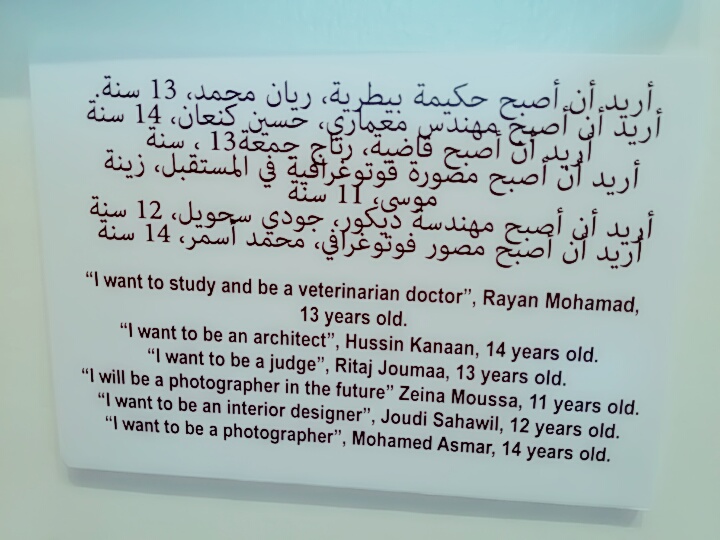 أريد أن أصبح حكيمة بيطرية، ريان محمد، 13 سنة.
أريد أن أصبح مهندس معماري، حسين كنعان، 14 سنة
أريد أن أصبح قاضية، رتاج جمعة13 ، سنة
أريد أن أصبح مصورة فوتوغرافية في المستقبل، زينة
موسى، 11 سنة
أريد أن أصبح مهندسة ديكور، جودي سحويل، 12 سنة
أريد أن أصبح مصور فوتوغرافي، محمد أسمر، 14 سنة
“I want to study and be a veterinarian doctor”, Rayan Mohamad,
13 years old.
“I want to be an architect”, Hussin Kanaan, 14 years old.
“I want to be a judge”, Ritaj Joumaa, 13 years old.
“I will be a photographer in the future” Zeina Moussa, 11 years old.
“I want to be an interior designer”, Joudi Sahawil, 12 years old.
“I want to be a photographer”, Mohamed Asmar, 14 years old.